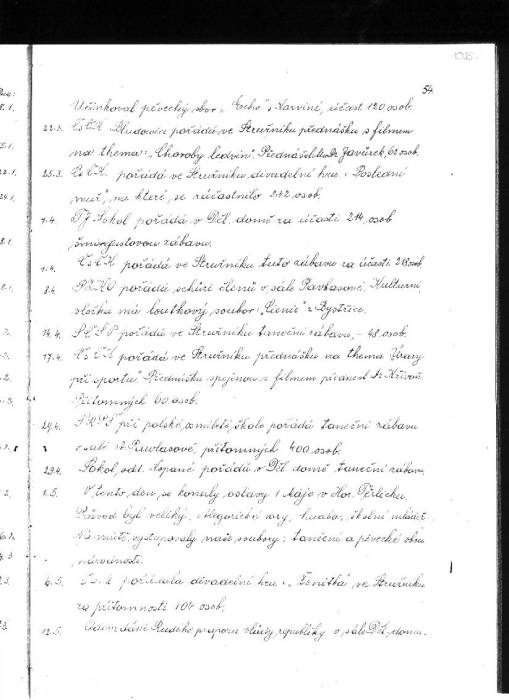 54.
Účinkoval pěvecký sbor „Echo" z Karviné, účast 120 osob.
22.3. ČsČK Bludovice pořádá ve Stružníku přednášku s filmem
na thema: „Choroby ledvin". Přednášel MuDr Javůrek, 62 osob.
25.3. ČsČK pořádá ve Stružníku divadelní hru: „Poslední
muž", na které se zúčastnilo 242 osob.
1.4. TJ Sokol pořádá v Děl. domě za účasti 214 osob
šmirgustovou zábavu.
1.4. ČsČK pořádá ve Stružníku tuto zábavu za účasti 213 osob
8.4. PZKO pořádá schůzi členů v sále Pavlasové. Kulturní
vložku má loutkový soubor z Bystřice.
14.4. pořádá ve Stružníku taneční zábavu, - 48 osob.
17.4. ČsČK pořádá ve Stružníku přednášku na thema „Úrazy
při sportu". Přednášku spojenou s filmem přednesl Dr
Přítomných 60 osob.
29.4. SRPŠ při polské osmileté škole pořádá taneční zábavu
v sále Pawlasové, přítomných 400 osob.
29.4. Sokol, odd. kopané pořádá v Děl. domě taneční zábavu.
1.5. V tento den se konaly oslavy 1 Máje v Hor. Těrlicku.
Průvod byl veliký. Alegorické vozy, hudba, školní mládež.
Na místě vystupovaly naše soubory: taneční a pěvecké obou
národností.
6.5. pořádala divadelní hru: „Ženitba", ve Stružníku
za přítomnosti 104 osob.
12.5. Odevzdání Rudého praporu vlády republiky v sále Děl. domu.